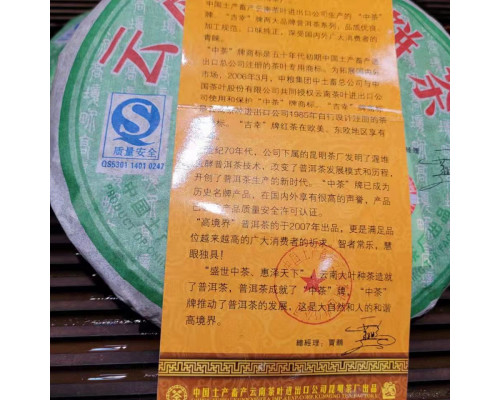 云
饼茶
质量安全
QS5301 1401 0247
中国土产畜产云南茶叶进出口公司生产的“中茶”
牌、“吉幸”牌两大品牌普洱茶系列，品质优良、
加工规范、口味纯正，深受国内外广大消费者的
青睐。
“中茶”牌商标是五十年代初期中国土产畜产进
出口总公司注册的茶叶专用商标。为拓展
市场，2006年3月，中粮集团中土畜总公司与中
国茶叶股份有限公司共同授权云南茶叶进出口公
司使用和保护“中茶”牌商标。“吉幸”牌
茶叶进出口公司1985年自行设计注册的茶
“吉幸”牌红茶在欧美、东欧地区享有
世纪70年代，公司下属的昆明茶厂发明了渥堆
发酵普洱茶技术，改变了普洱茶发展模式和历程，
开创了普洱茶生产的新时代。“中茶”牌已成为
历史名牌产品，在国内外享有很高的声誉，产品
产品质量安全许可认证。
“高境界”普洱茶的于2007年出品，更是满足品
位越来越高的广大消费者的祈求，智者常乐，慧
眼独具！
“盛世中茶、惠泽天下”，云南大叶种茶造就
了普洱茶，普洱茶成就了“中茶”牌，“中茶”
牌推动了普洱茶的发展，这是大自然和人的和谐
高境界。
总经理：
中国土产畜产云南茶叶进出口公司昆明茶厂出品